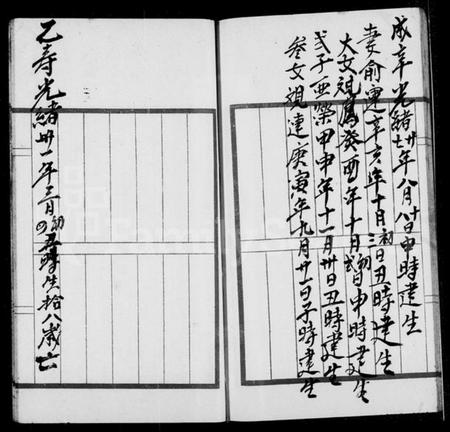 成辛光緒廿七年八月十八日申時建生
妻俞運辛亥年十月初三日丑時建生
大女視鳳癸酉年十月初弍日申時建生
弍子亜榮甲申年十一月卅日丑時建生
叁女視連庚寅年九月廿一日子時建生
乙寿光緒卅一年三月初四丑時生拾八歲亡